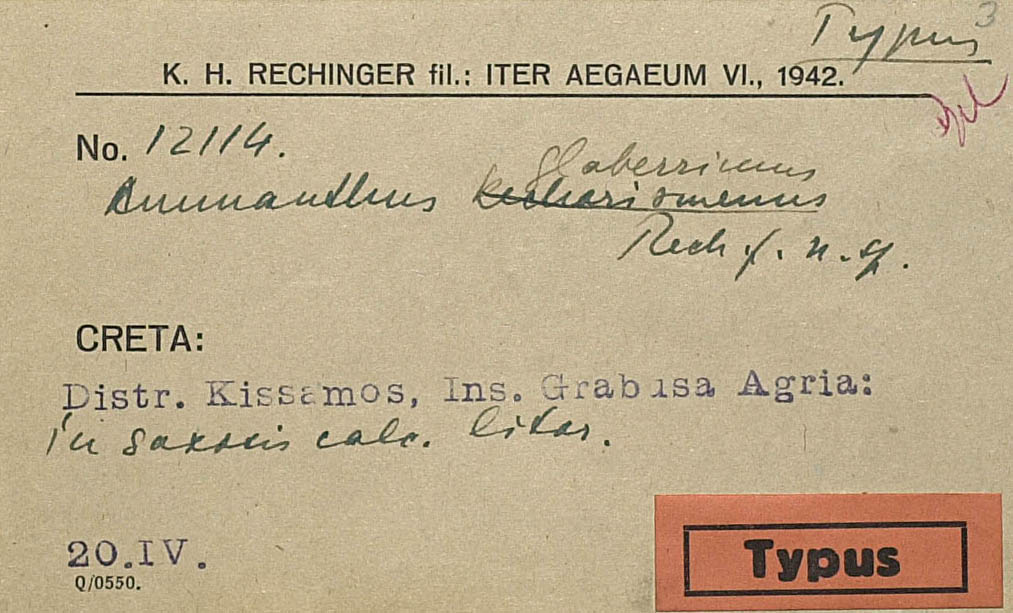 3
Typus
K. H. RECHINGER fil.: ITER AEGAEUM VI., 1942.
No. 12114.
glaberrimus
Ammanthus kecharismenus
Rech f. n. sp.
CRETA:
Distr. Kissamos, Ins. Grabusa Agria:
in saxosis calc. litor.
20.IV.
Q/0550.
Typus